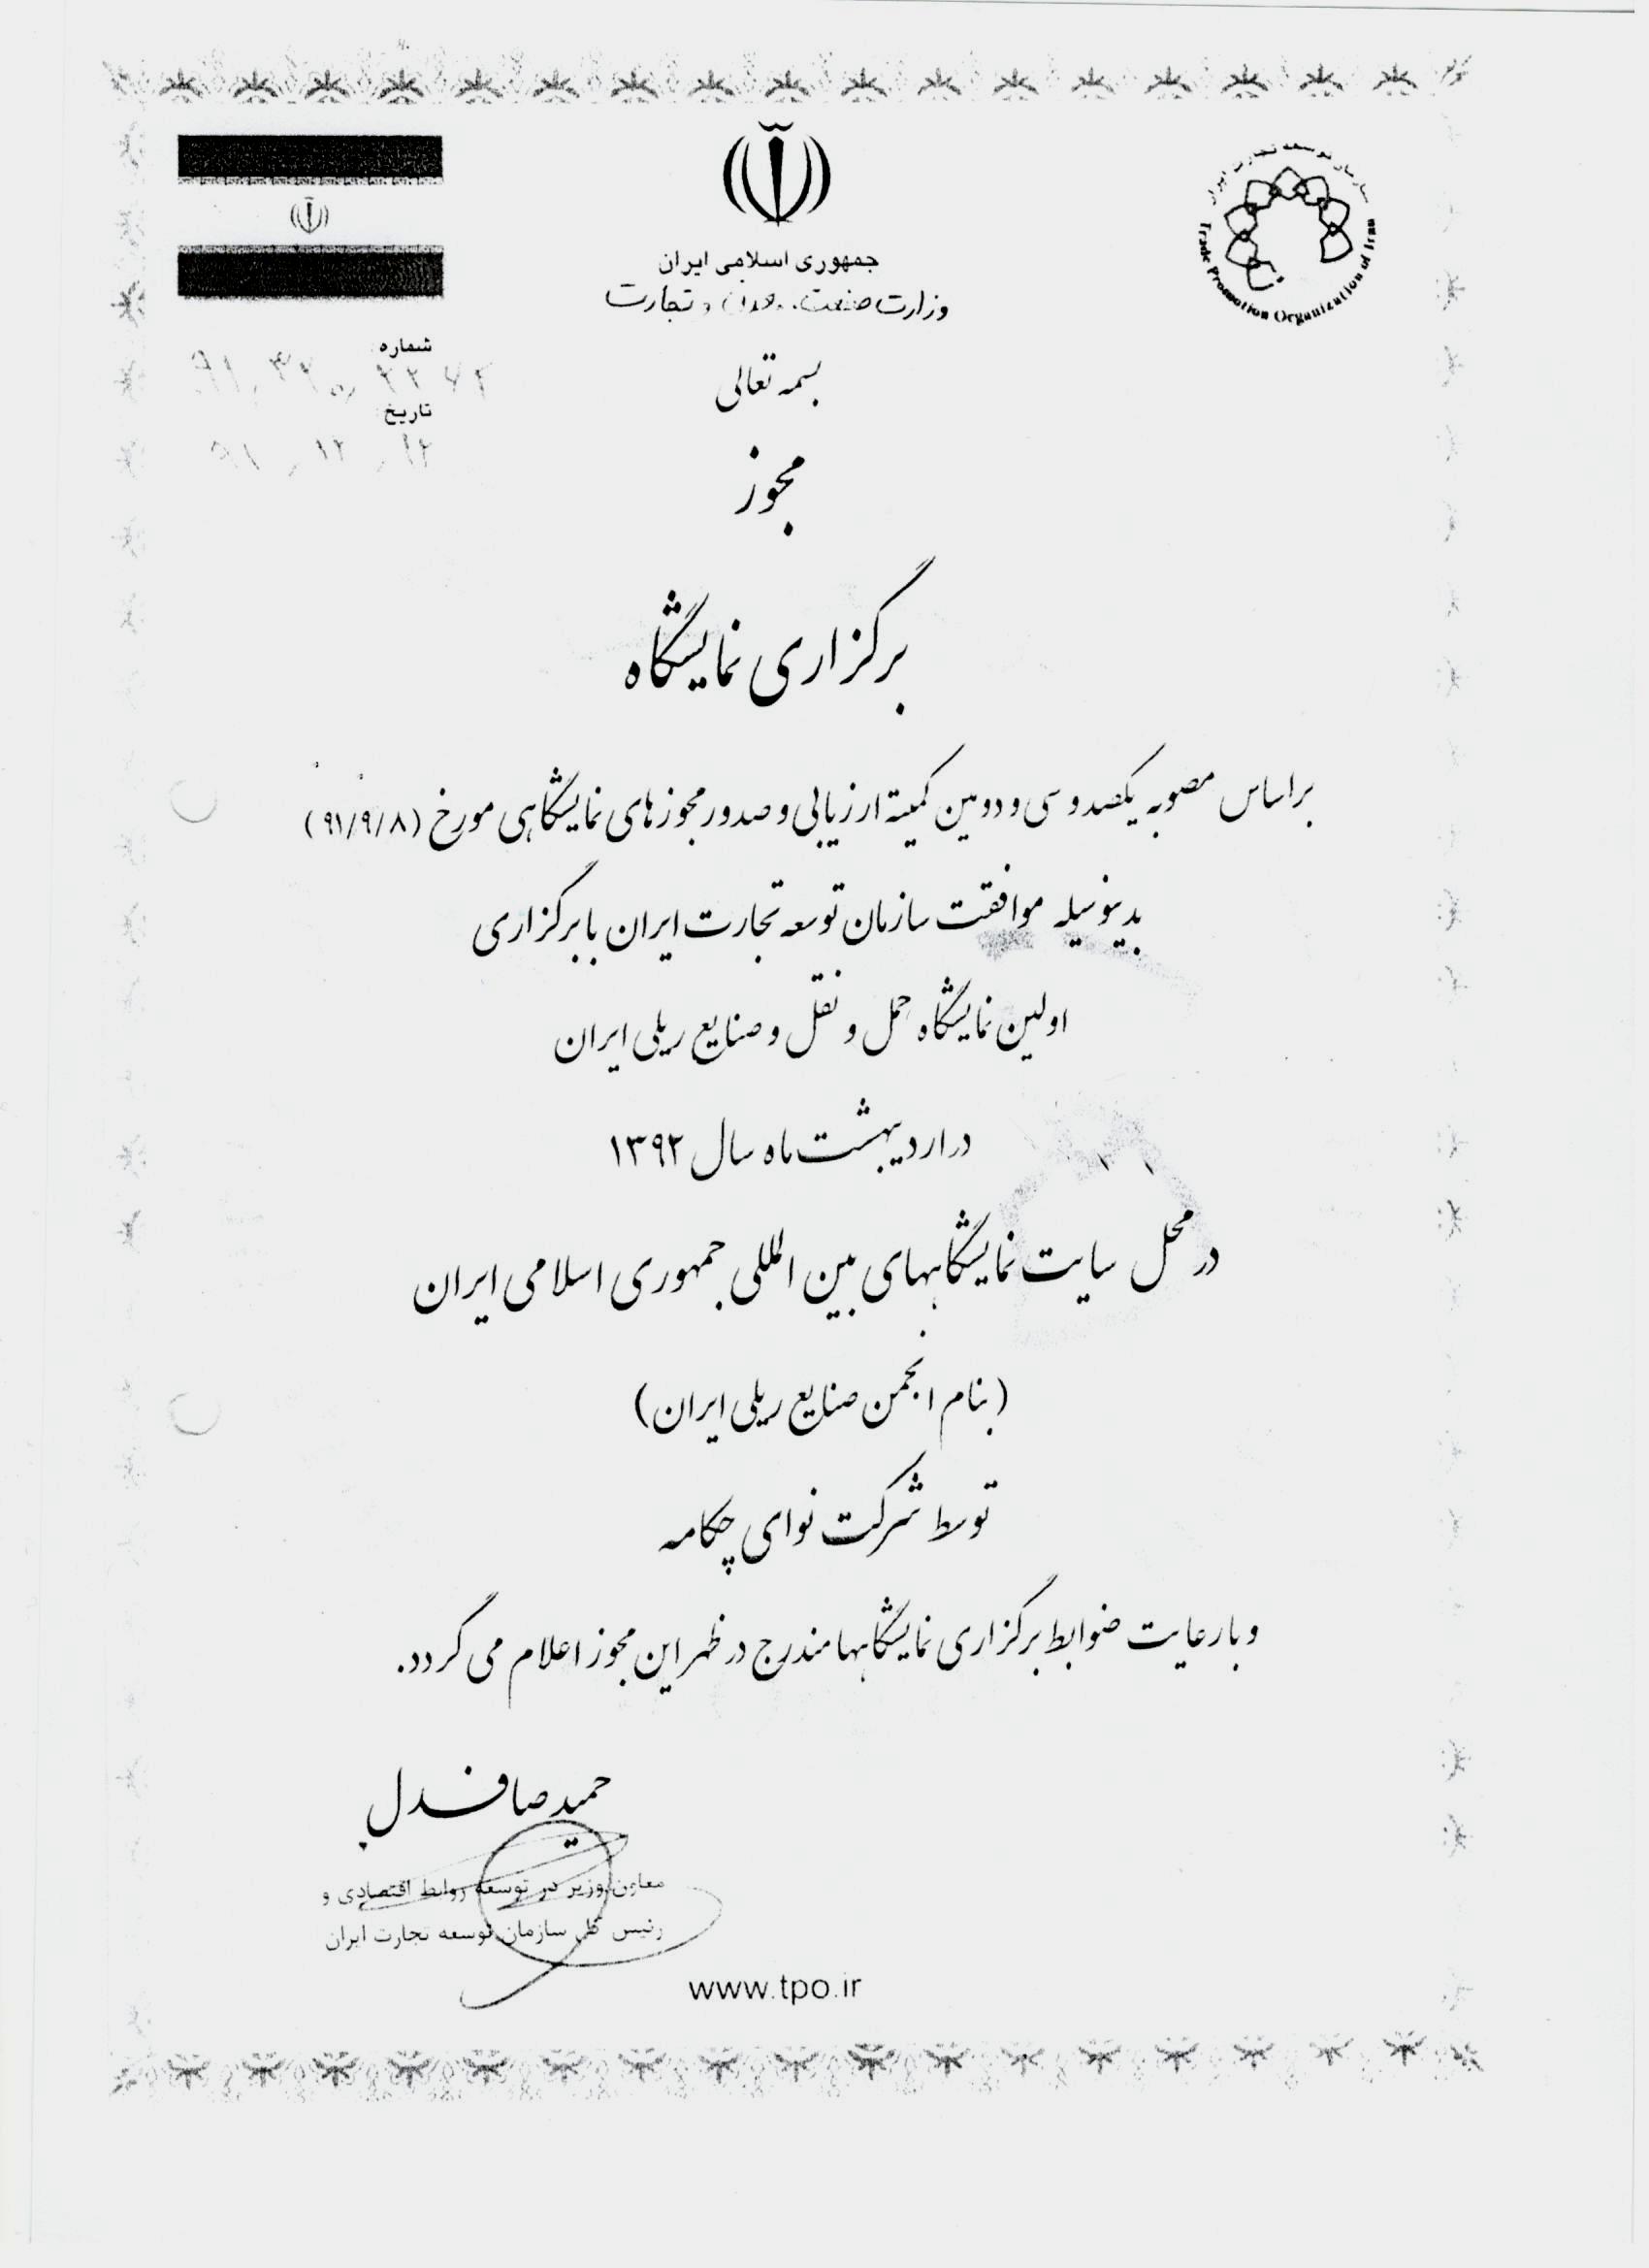 سازمان توسعه تجارت ایران
Trade Promotion Organization of Iran
جمهوری اسلامی ایران
وزارت صنعت، معدن و تجارت
شماره
تاریخ
۹۱
بسمه تعالی
مجوز
برگزاری نمایشگاه
براساس مصوبه یکصد و سی و دومین کمیته ارزیابی و صدور مجوزهای نمایشگاهی مورخ (۹۱/۹/۸)
بدینوسیله موافقت سازمان توسعه تجارت ایران با برگزاری
اولین نمایشگاه حمل و نقل و صنایع ریلی ایران
در اردیبهشت ماه سال ۱۳۹۲
در محل سایت نمایشگاههای بین المللی جمهوری اسلامی ایران
(بنام انجمن صنایع ریلی ایران)
توسط شرکت نوای چکامه
و با رعایت ضوابط برگزاری نمایشگاهها مندرج در ظهر این مجوز اعلام می گردد.
حمید صافدل
معاون وزیر در توسعه روابط اقتصادی و
رئیس کل سازمان توسعه تجارت ایران
www.tpo.ir